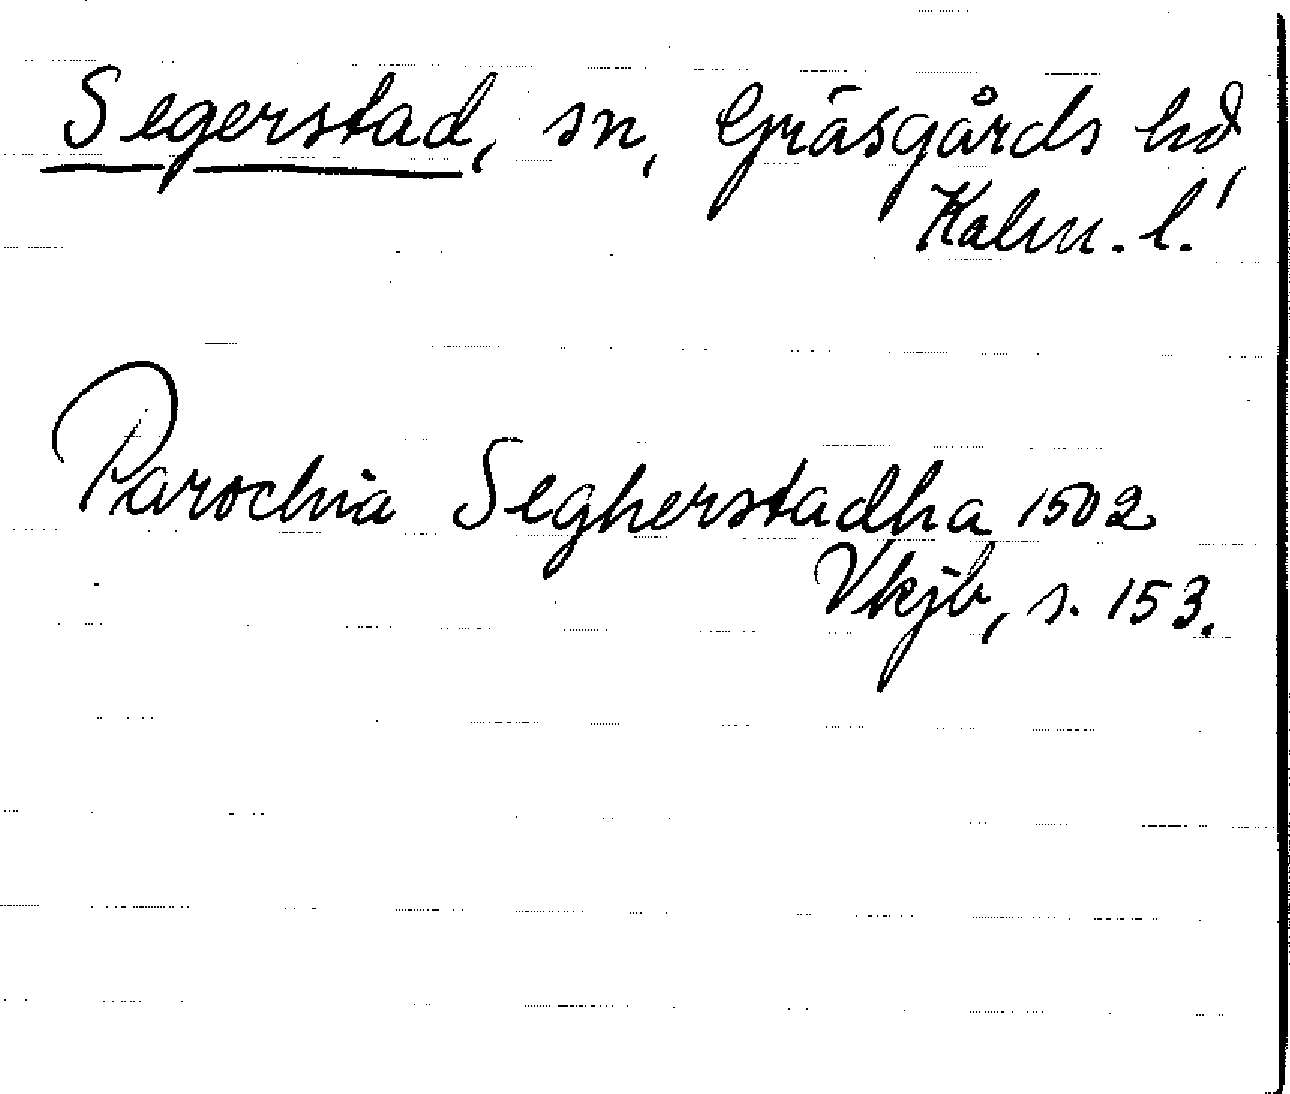 Segerstad, sn, Gräsgårds hd,
Kalm. l.
Parochia Segherstadha 1502
Vkjb, s. 153.